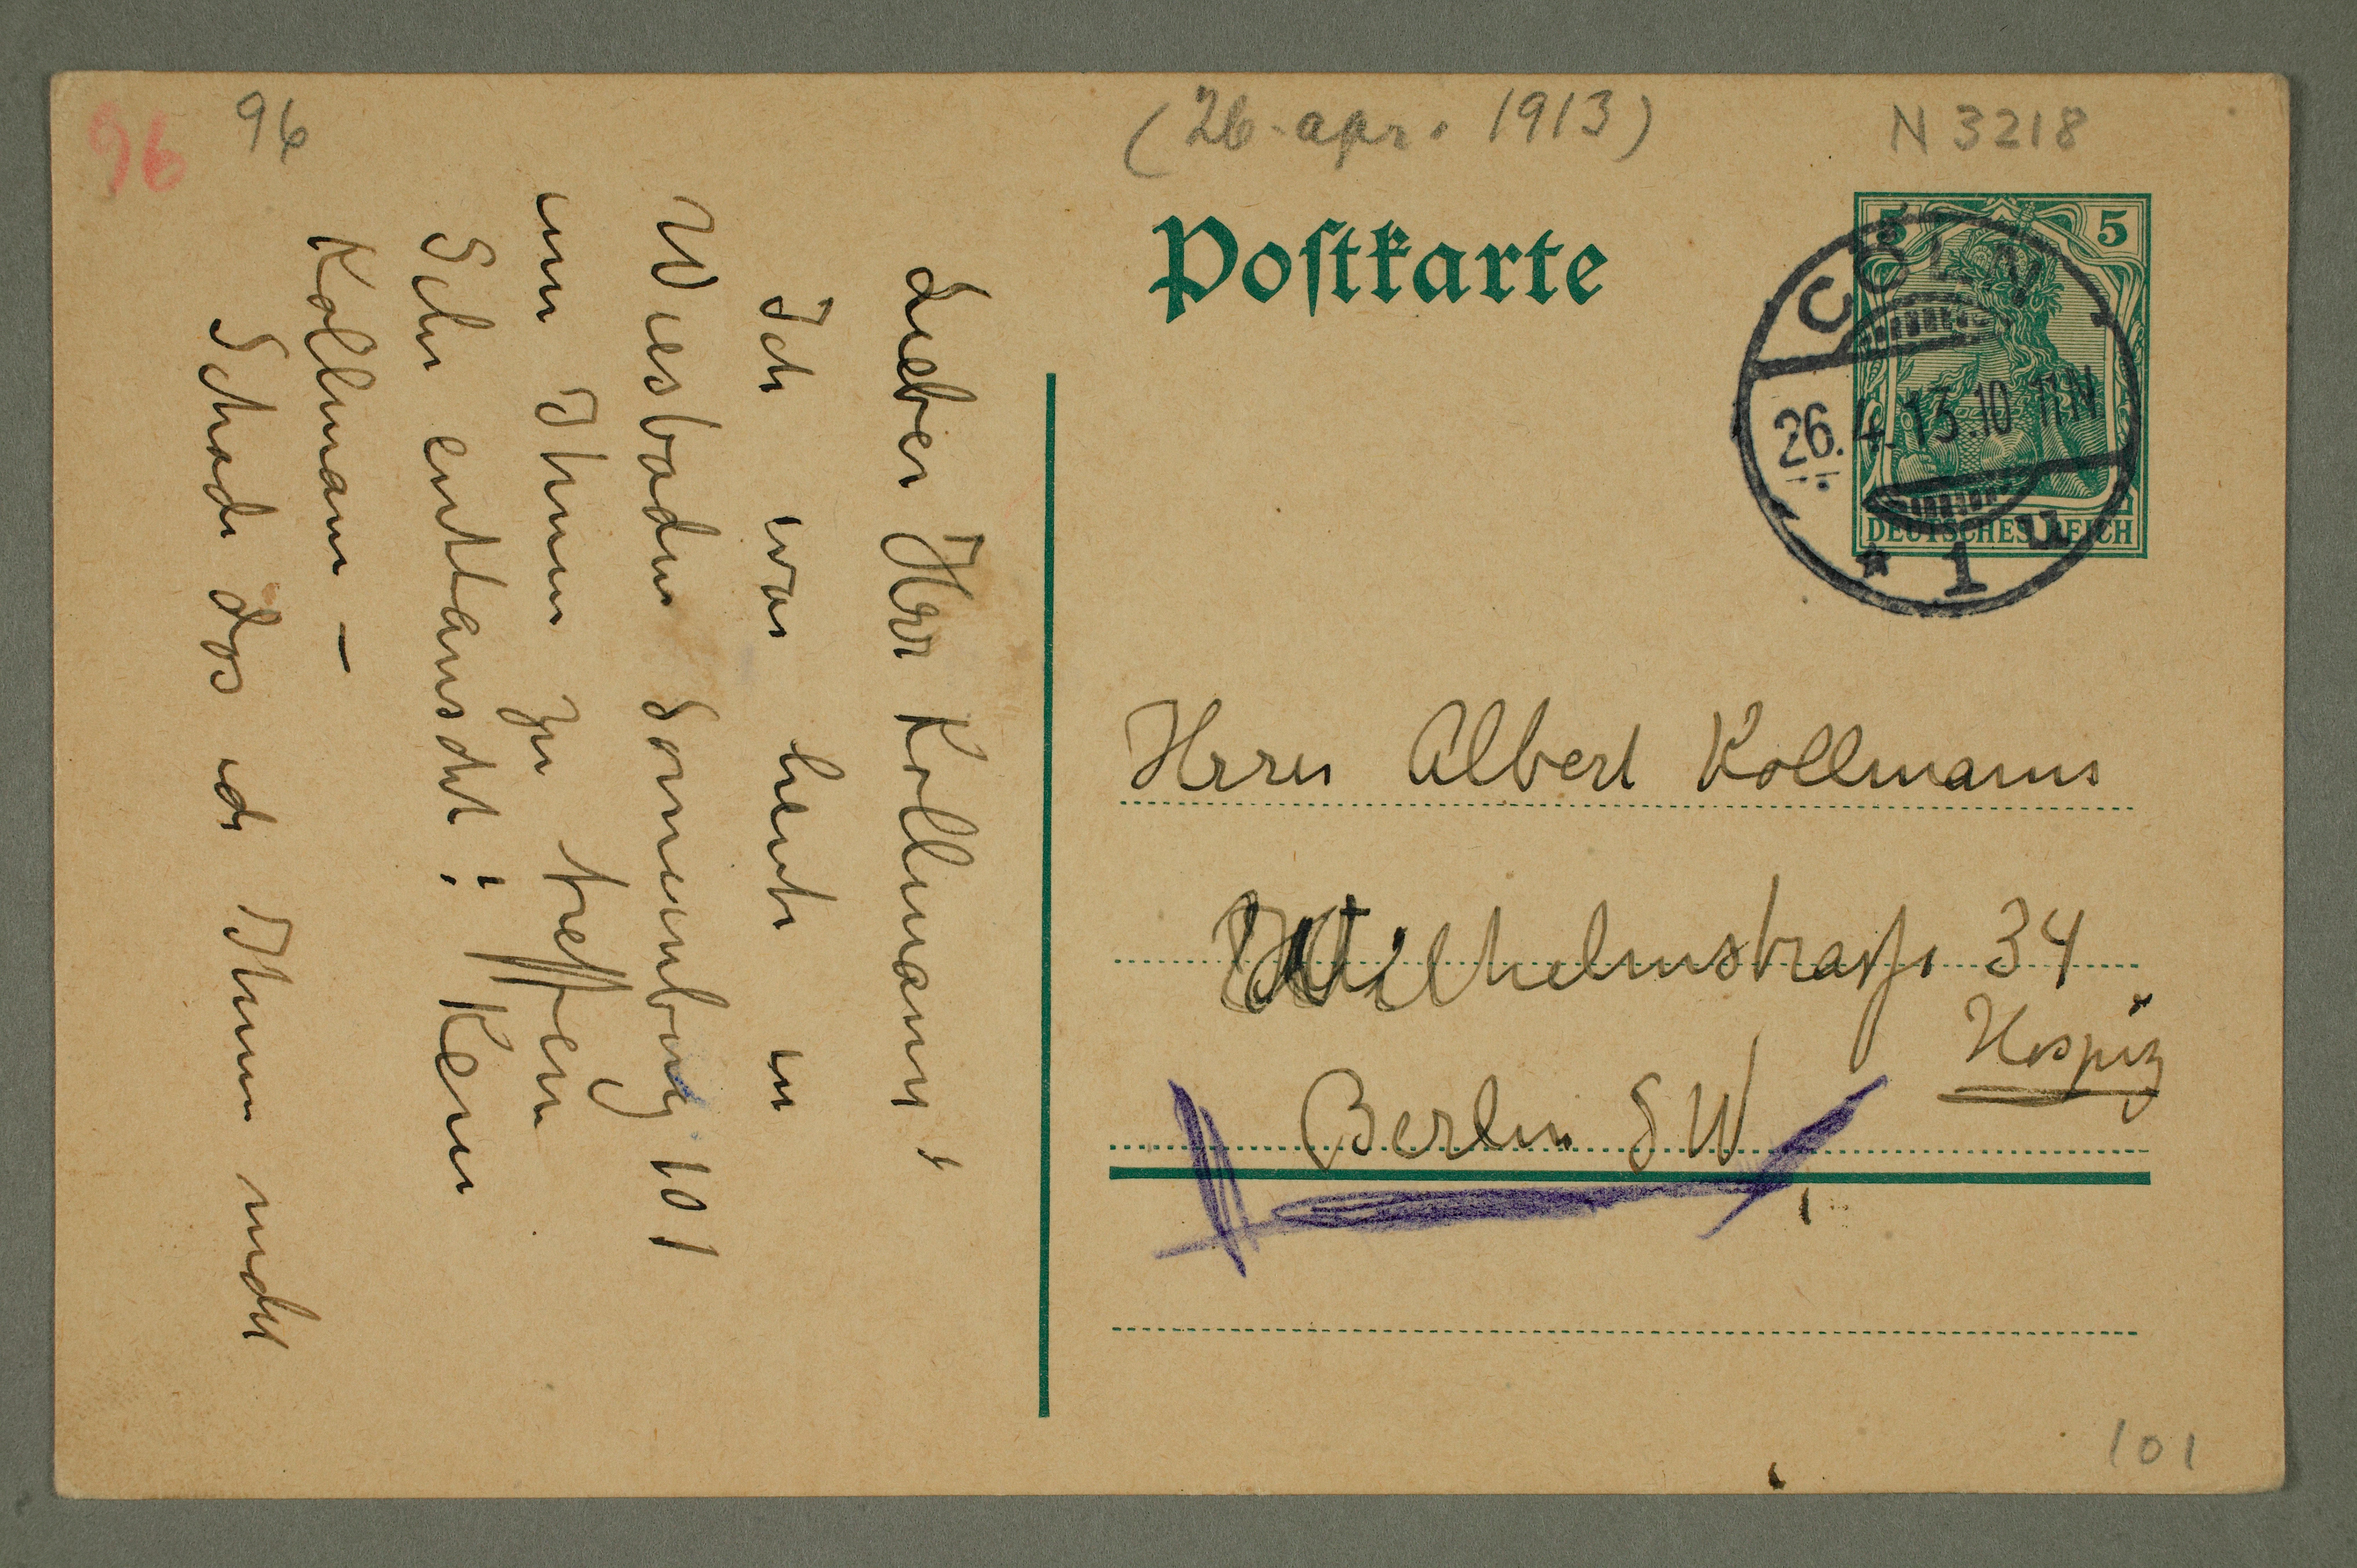 96
96
(26. apr. 1913)
N 3218
Postkarte
5
5
DEUTSCHES REICH
CÖLN
26.4.13.10-11N
* 1 u
Herrn Albert Kollmann
Wilhelmstrasse 34
Hospiz
Berlin SW
101
Lieber Herr Kollmann!
Ich war heute in
Wiesbaden Sonnenberg 101
um Ihnen zu treffen
Sehr enttauscht! Kein
Kollmann –
Schade das ich Ihnen nicht